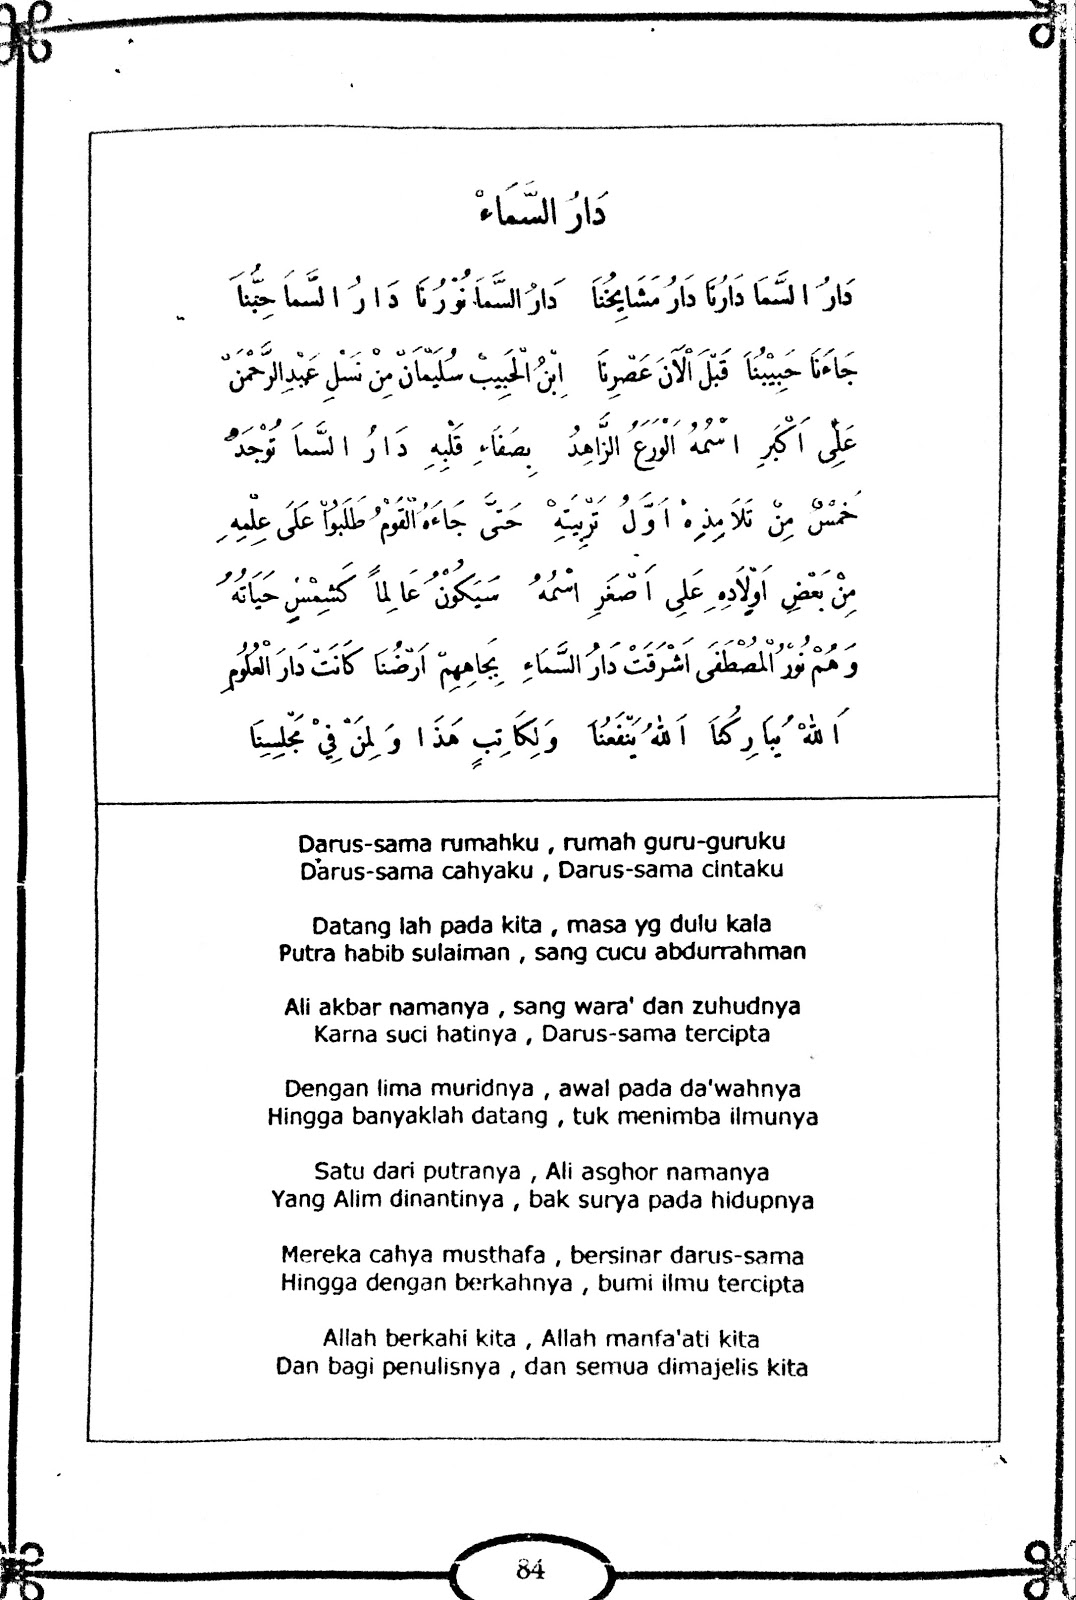 دَارُ السَّمَاءْ
دَارُ السَّمَا دَارُنَا دَارُ مَشَايِخُنَا دَارُ السَّمَا نُوْرُنَا دَارُ السَّمَا حِبُّنَا
جَاءَنَا حَبِيْبُنَا قَبْلَ الْآنَ عَصْرِنَا اِبْنُ الْحَبِيبْ سُلَيْمَانْ مِنْ نَسْلِ عَبْدِالرَّحْمٰنْ
عَلِى اَكْبَرِ اسْمُهُ اَلْوَرَعُ الزَّاهِدُ بِصَفَاءِ قَلْبِهِ دَارُ السَّمَا تُوْجَدُ
خَمْسٌ مِنْ تَلَامِذِهِ اَوَّلُ تَرْبِيَتِهْ حَتَّى جَاءَهُ الْقَوْمُ طَلَبُوْا عَلَى عِلْمِهِ
مِنْ بَعْضِ اَوْلَادِهِ عَلِى اَصْغَرِ اسْمُهُ سَيَكُوْنُ عَالِماً كَشَمْسٍ حَيَاتُهُ
وَهُمْ نُوْرُ الْمُصْطَفَى اَشْرَقَتْ دَارُ السَّمَاءِ بِجَاهِهِمْ اَرْضُنَا كَانَتْ دَارَ الْعُلُوْمِ
اَللهْ يُبَارِكُنَا اَللهُ يَنْفَعُنَا وَلِكَاتِبٍ هَذَا وَلِمَنْ فِيْ مَجْلِسِنَا
Darus-sama rumahku , rumah guru-guruku
Darus-sama cahyaku , Darus-sama cintaku
Datang lah pada kita , masa yg dulu kala
Putra habib sulaiman , sang cucu abdurrahman
Ali akbar namanya , sang wara' dan zuhudnya
Karna suci hatinya , Darus-sama tercipta
Dengan lima muridnya , awal pada da'wahnya
Hingga banyaklah datang , tuk menimba ilmunya
Satu dari putranya , Ali asghor namanya
Yang Alim dinantinya , bak surya pada hidupnya
Mereka cahya musthafa , bersinar darus-sama
Hingga dengan berkahnya , bumi ilmu tercipta
Allah berkahi kita , Allah manfa'ati kita
Dan bagi penulisnya , dan semua dimajelis kita
84